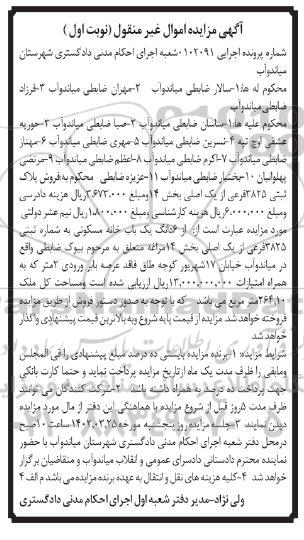 آگهی مزایده اموال غیر منقول (نوبت اول )
شماره پرونده اجرایی ۰۱۰۲۰۹۱شعبه اجرای احکام مدنی دادگستری شهرستان
میاندوآب
محکوم له ها:۱-سالار ضابطی میاندوآب ۲-مهران ضابطی میاندوآب ۳-فرزاد
ضابطی میاندوآب
محکوم علیه ها:۱-ساسان ضابطی میاندوآب ۲-صبا ضابطی میاندوآب ۳-حوریه
عشقی اوچ تپه ۴-نسرین ضابطی میاندوآب ۵-مهری ضابطی میاندوآب ۶-مهناز
ضابطی میاندوآب ۷-اکرم ضابطی میاندوآب ۸-اعظم ضابطی میاندوآب ۹-مرتضی
پهلوانیان ۱۰-بختیار ضابطی میاندوآب ۱۱-عزیزه ضابطی محکوم به:فروش پلاک
ثبتی ۳۸۲۵فرعی از یک اصلی بخش ۱۴ومبلغ ۳.۶۷۳.۰۰۰ریال هزینه دادرسی
ومبلغ ۶.۰۰۰.۰۰۰ریال هزینه کارشناسی ومبلغ ۱.۵۰۰.۰۰۰ریال نیم عشر دولتی
مورد مزایده عبارت است از: از ۶دانگ یک باب خانه مسکونی به شماره ثبتی
۳۸۲۵فرعی از یک اصلی بخش ۱۴مراغه متعلق به مرحوم بیوک ضابطی واقع
در میاندوآب خیابان ۱۷شهریور کوچه طاق فاقد عرصه بابر ورودی ۲متر که به
همراه امتیازات ۱۳.۰۰۰.۰۰۰.۰۰۰ریال ارزیابی شده است ومساحت کل ملک
۲۶۴.۱۰متر مربع می باشد که با توجه به صدور دستور فروش از طریق مزایده
فروخته خواهد شد. مزایده از قیمت پایه شروع وبه بالاترین قیمت پیشنهادی واگذار
خواهد شد
شرایط مزایده: ۱-برنده مزایده بایستی ده درصد مبلغ پیشنهادی را فی المجلس
ومابقی را ظرف مدت یک ماه ازتاریخ مزایده پرداخت نماید و حتما کارت بانکی
جهت پرداخت ده درصد به همراه داشته باشد ۲-شرکت کنندگان می توانند
ظرف مدت ۵روز قبل از شروع مزایده با هماهنگی این دفتر از مال مورد مزایده
دیدن نمایند ۳-جلسه مزایده روز پنجشنبه مورخه ۱۴۰۲.۰۳.۲۵ساعت ۱۰صبح
درمحل دفتر شعبه اجرای احکام مدنی دادگستری شهرستان میاندوآب با حضور
نماینده محترم دادستانی دادسرای عمومی و انقلاب میاندوآب و متقاضیان برگزار
خواهد شد ۴-کلیه هزینه های نقل و انتقال به عهده برنده مزایده می باشد م الف ۴
ولی نژاد-مدیر دفتر شعبه اول اجرای احکام مدنی دادگستری